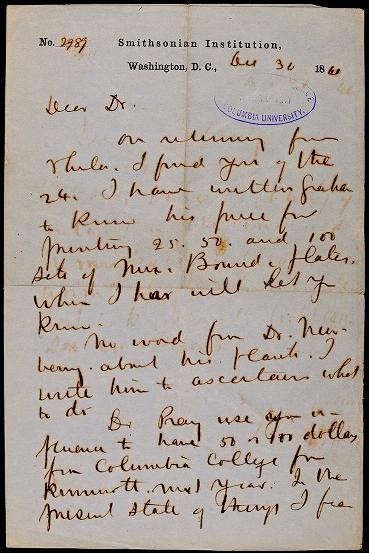 No. 2989 Smithsonian Institution,
Washington, D. C., Dec 30 1860
COLUMBIA UNIVERSITY.
Dear Dr.
On returning from
Phila. I find yrs of the
24. I have written Graham
to know his price for
printing 25. 50. and 100
sets of Mex. Bound. plates.
When I hear will let you
know.
No word from Dr. New-
berry about his plants. I
write him to ascertain what
to do
Do Pray use your in-
fluence to have 50 or 100 dollars
from Columbia College for
Kennicott next year. In the
present state of things I fear